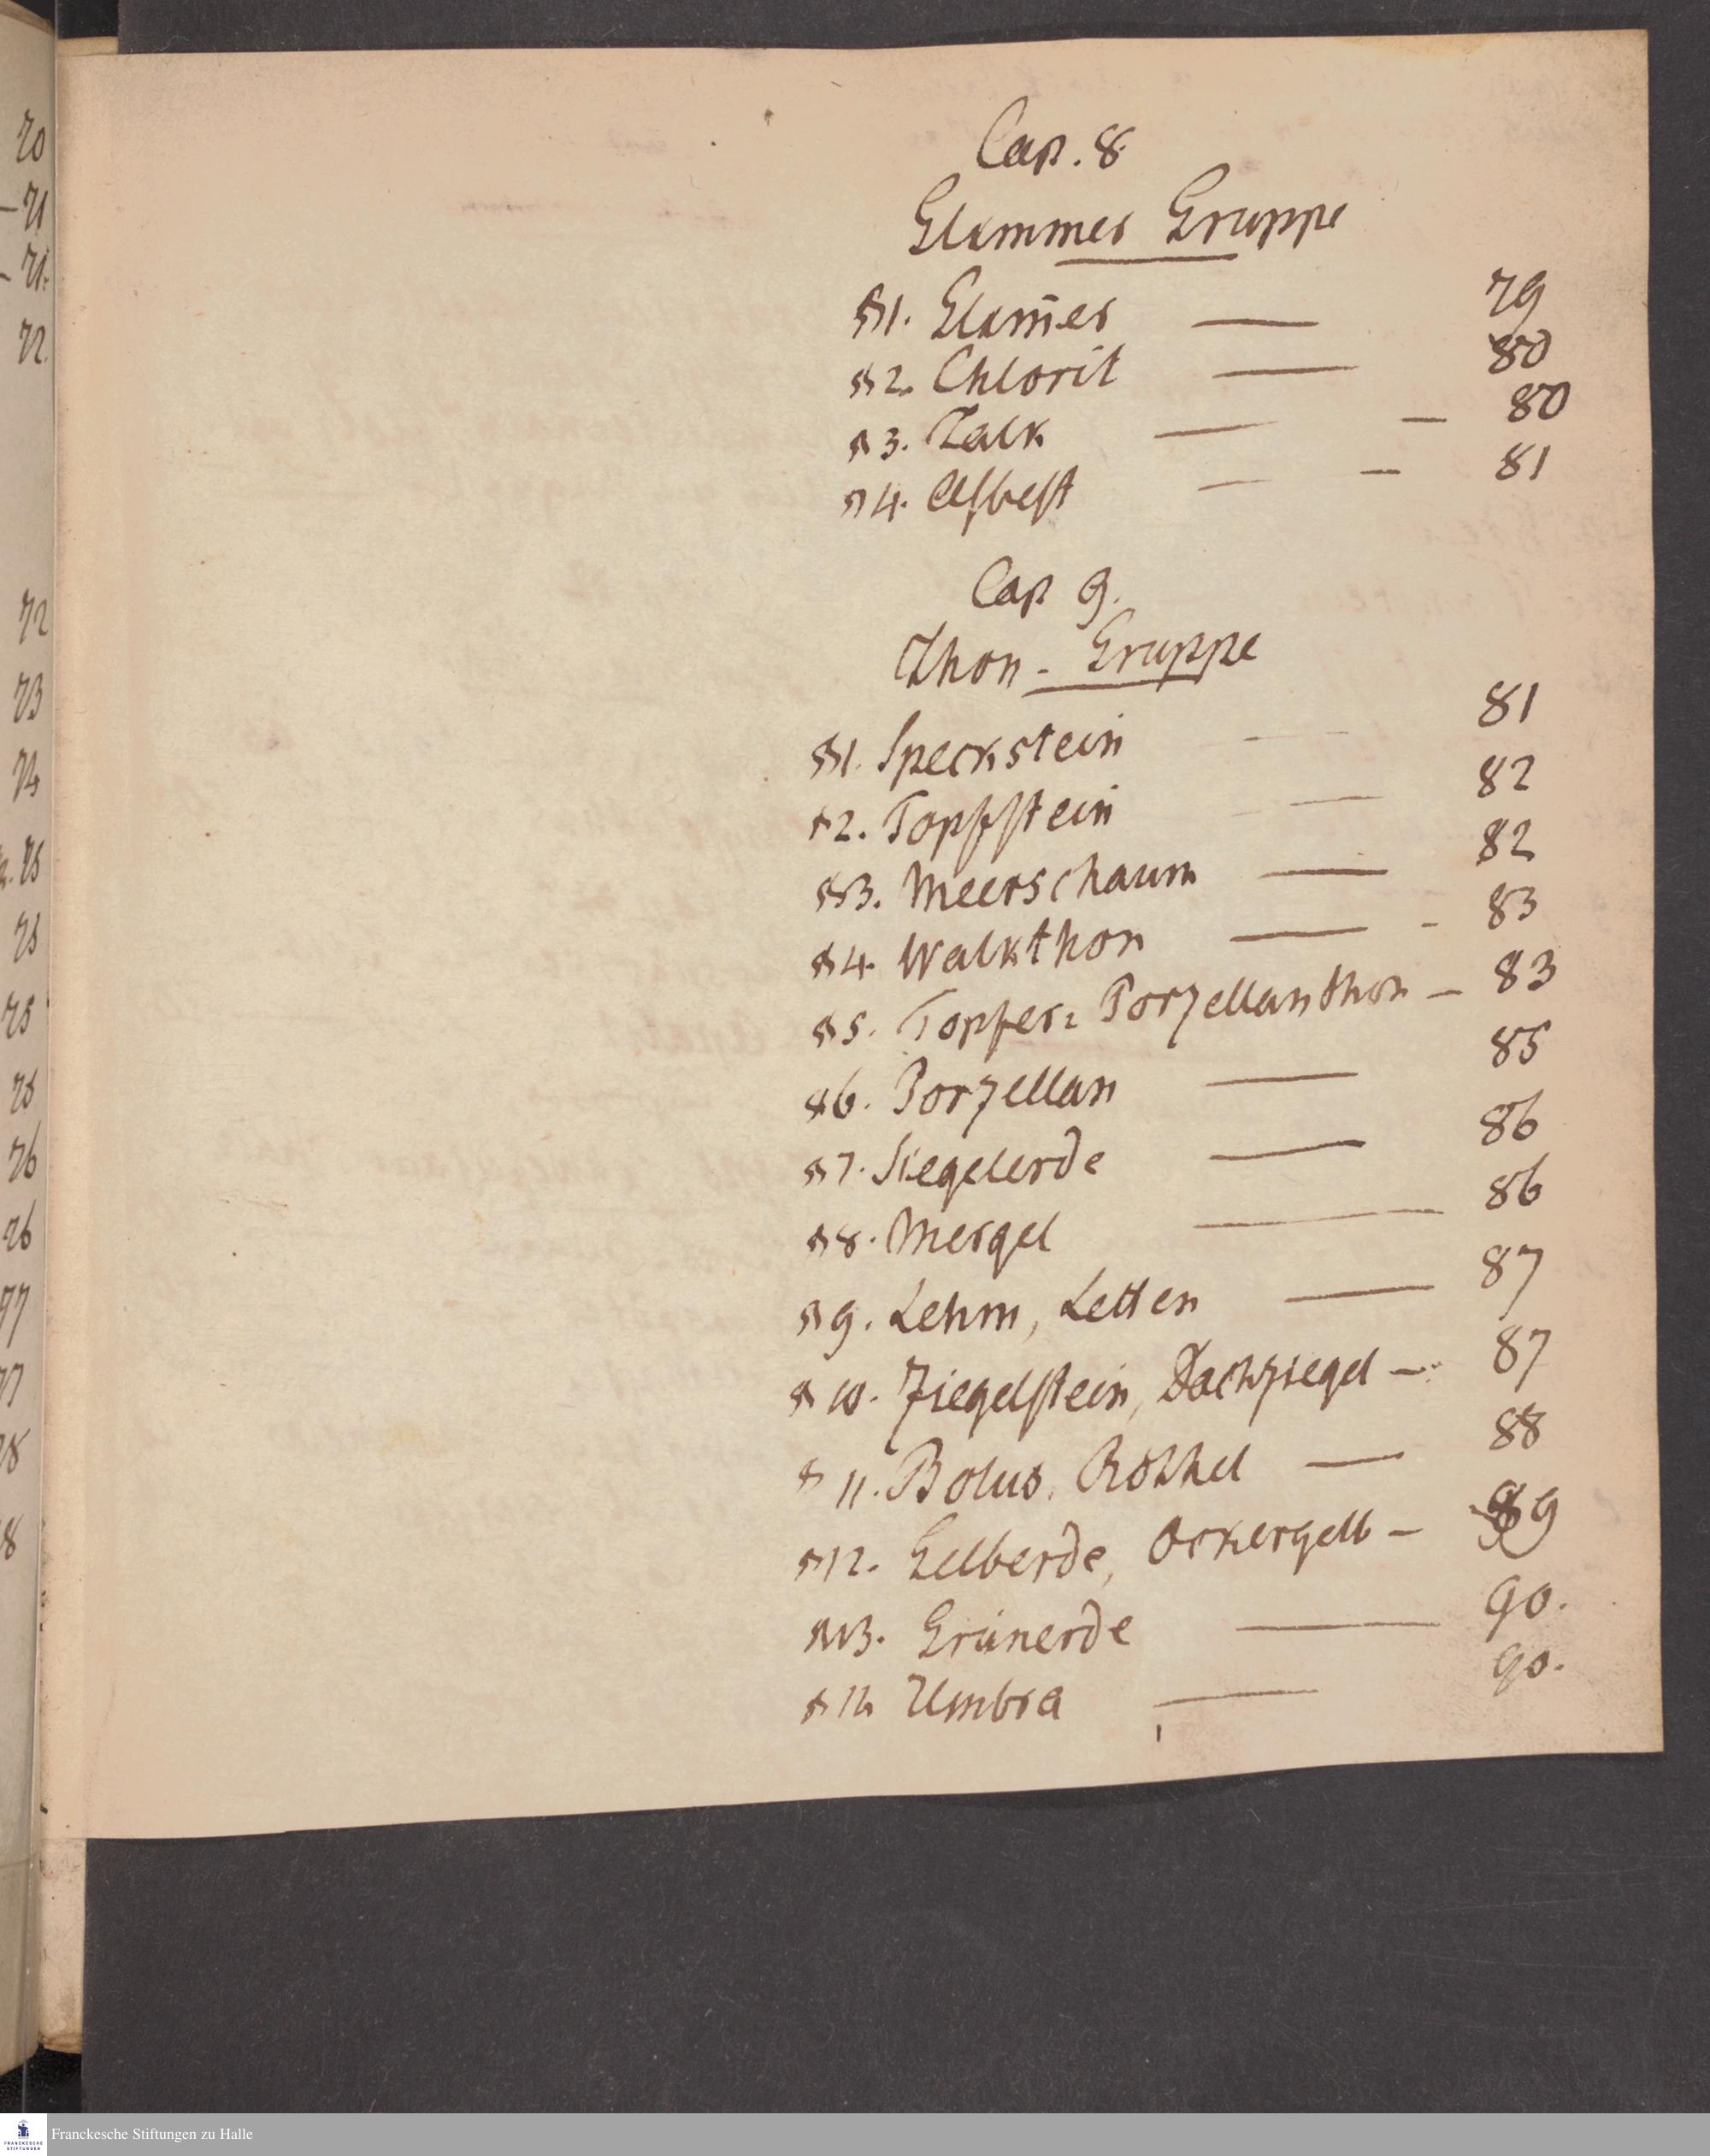 Cap. 8
Glimmer Gruppe
§ 1. Glim̄er — 79
§ 2. Chlorit — 80
§ 3. Talk — — 80
§ 4. Asbest — — 81
Cap 9.
Thon - Gruppe
§ 1. Speckstein — 81
§ 2. Topfstein — 82
§ 3. Meerschaum — 82
§ 4. Walkthon — - 83
§ 5. Topfer= Porzellanthon — 83
§ 6. Porzellan — 85
§ 7. Siegelerde — 86
§ 8. Mergel — 86
§ 9. Lehm, Letten — 87
§ 10. Ziegelstein, Dachziegel — 87
§ 11. Bolus, Röthel — 88
§ 12. Gelberde, Ockergelb — 89
§ 13. Grünerde — 90.
§ 14 Umbra — 90.
70
— 71
- 71.
72.
72
73
74
75
75
75
76
76
77
77
78
Franckesche Stiftungen zu Halle
FRANCKESCHE
STIFTUNGEN